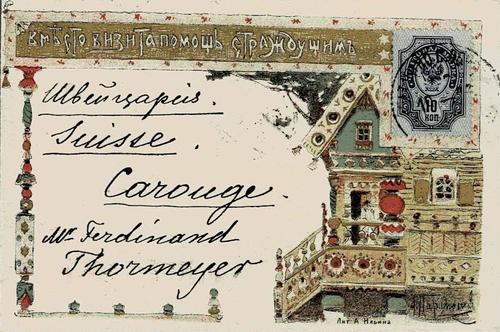 ВМѢСТО ВИЗИТА ПОМОЩЬ СТРАЖДУЩИМЪ
Швейцарія.
Suisse.
Carouge.
Mr Ferdinand
Thormeyer
КОП.
Лит. А. Ильина